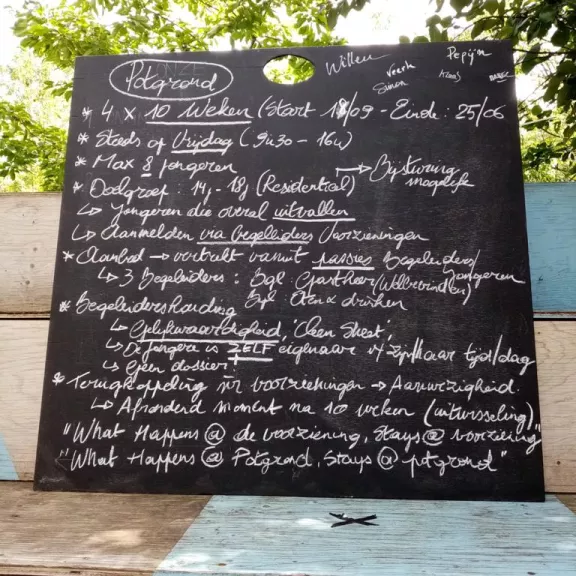 Potgrond
Willem
Veerle
Simon
Pepijn
Klaas
* 4 x 10 Weken (Start 18/09 - Einde: 25/06
* Steeds op Vrijdag (9u30 - 16u)
* Max 8 jongeren
* Doelgroep: 14j - 18j (Residentieel) → Bijsturing mogelijk
↳ Jongeren die overal uitvallen
↳ Aanmelden via begeleiders Voorzieningen
* Aanbod → vertrekt vanuit passies Begeleiders/Jongeren
↳ 3 Begeleiders: Bgl: Gastheer (Welbevinden)
Bgl: Eten & drinken
* Begeleidershouding
↳ Gelijkwaardigheid, 'Clean Sheet',
↳ De jongere is ZELF eigenaar v/ zijn/haar tijd/dag
↳ Geen dossier!
* Terugkoppeling nr voorzieningen → Aanwezigheid.
↳ Afrondend moment na 10 weken (uitwisseling)
"What Happens @ de voorziening, Stays @ voorziening"
"What Happens @ Potgrond, Stays @ potgrond"